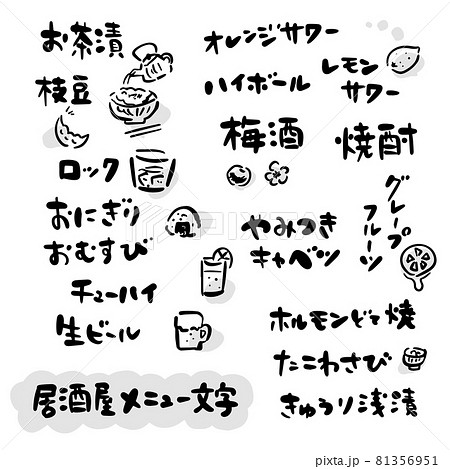 お茶漬
枝豆
ロック
おにぎり
おむすび
チューハイ
生ビール
居酒屋メニュー文字
オレンジサワー
ハイボール
レモン
サワー
梅酒
焼酎
グレープ
フルーツ
やみつき
キャベツ
ホルモンどて焼
たこわさび
きゅうり浅漬
pixta.jp - 81356951